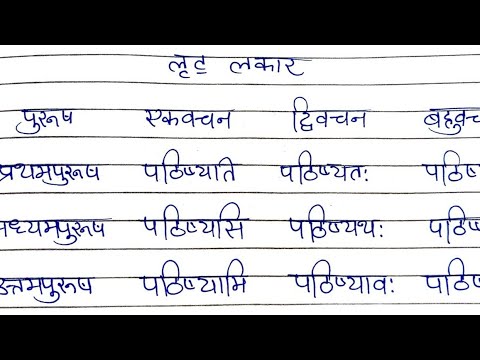 लृट् लकार
पुरूष एकवचन द्विवचन बहुवच
प्रथमपुरूष पठिष्यति पठिष्यतः पठिष्
मध्यमपुरूष पठिष्यसि पठिष्यथः पठिष्
उत्तमपुरूष पठिष्यामि पठिष्यावः पठिष्